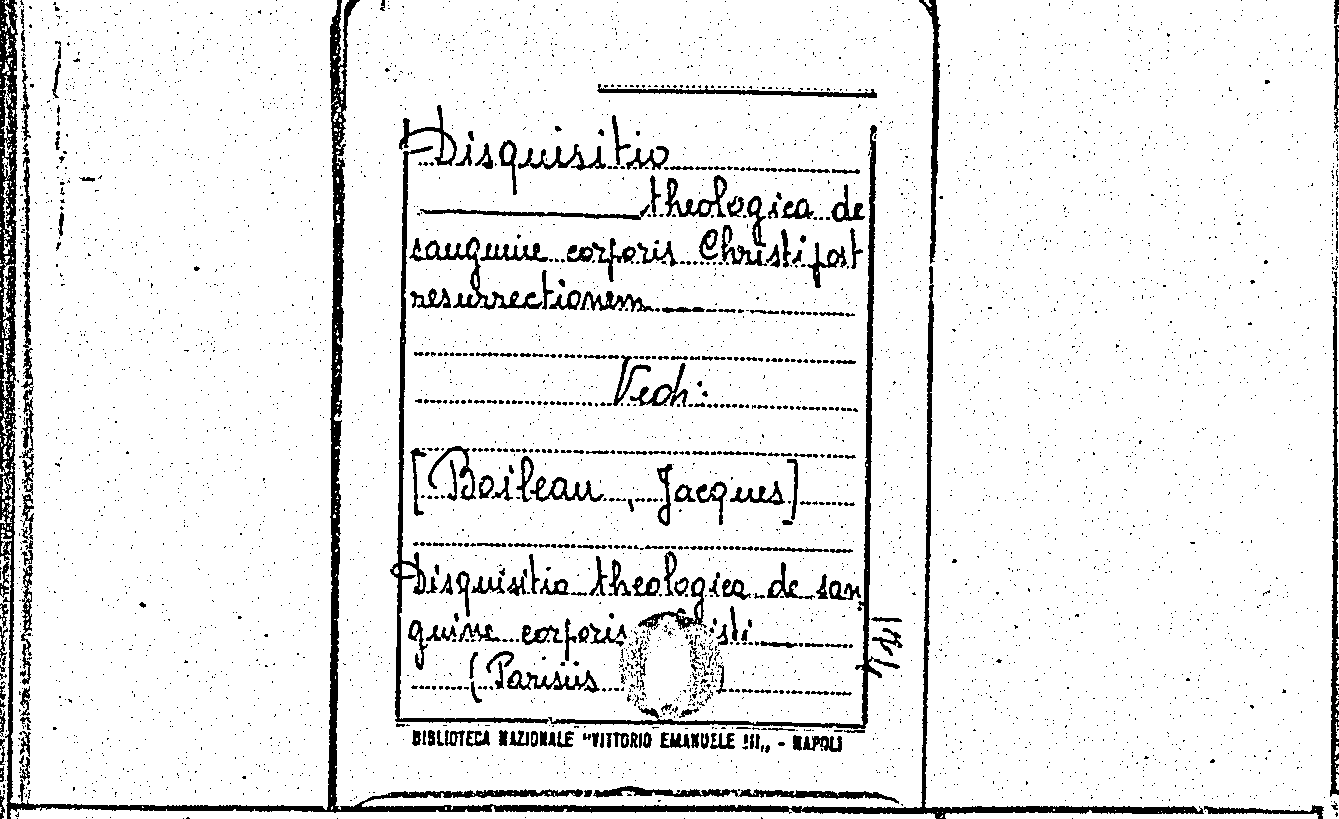 Disquisitio
theologica de
sanguine corporis Christi post
resurrectionem
Vedi:
[Boileau, Jacques]
Disquisitio theologica de san
guine corporis
(Parisiis
BIBLIOTECA NAZIONALE "VITTORIO EMANUELE III„ - NAPOLI